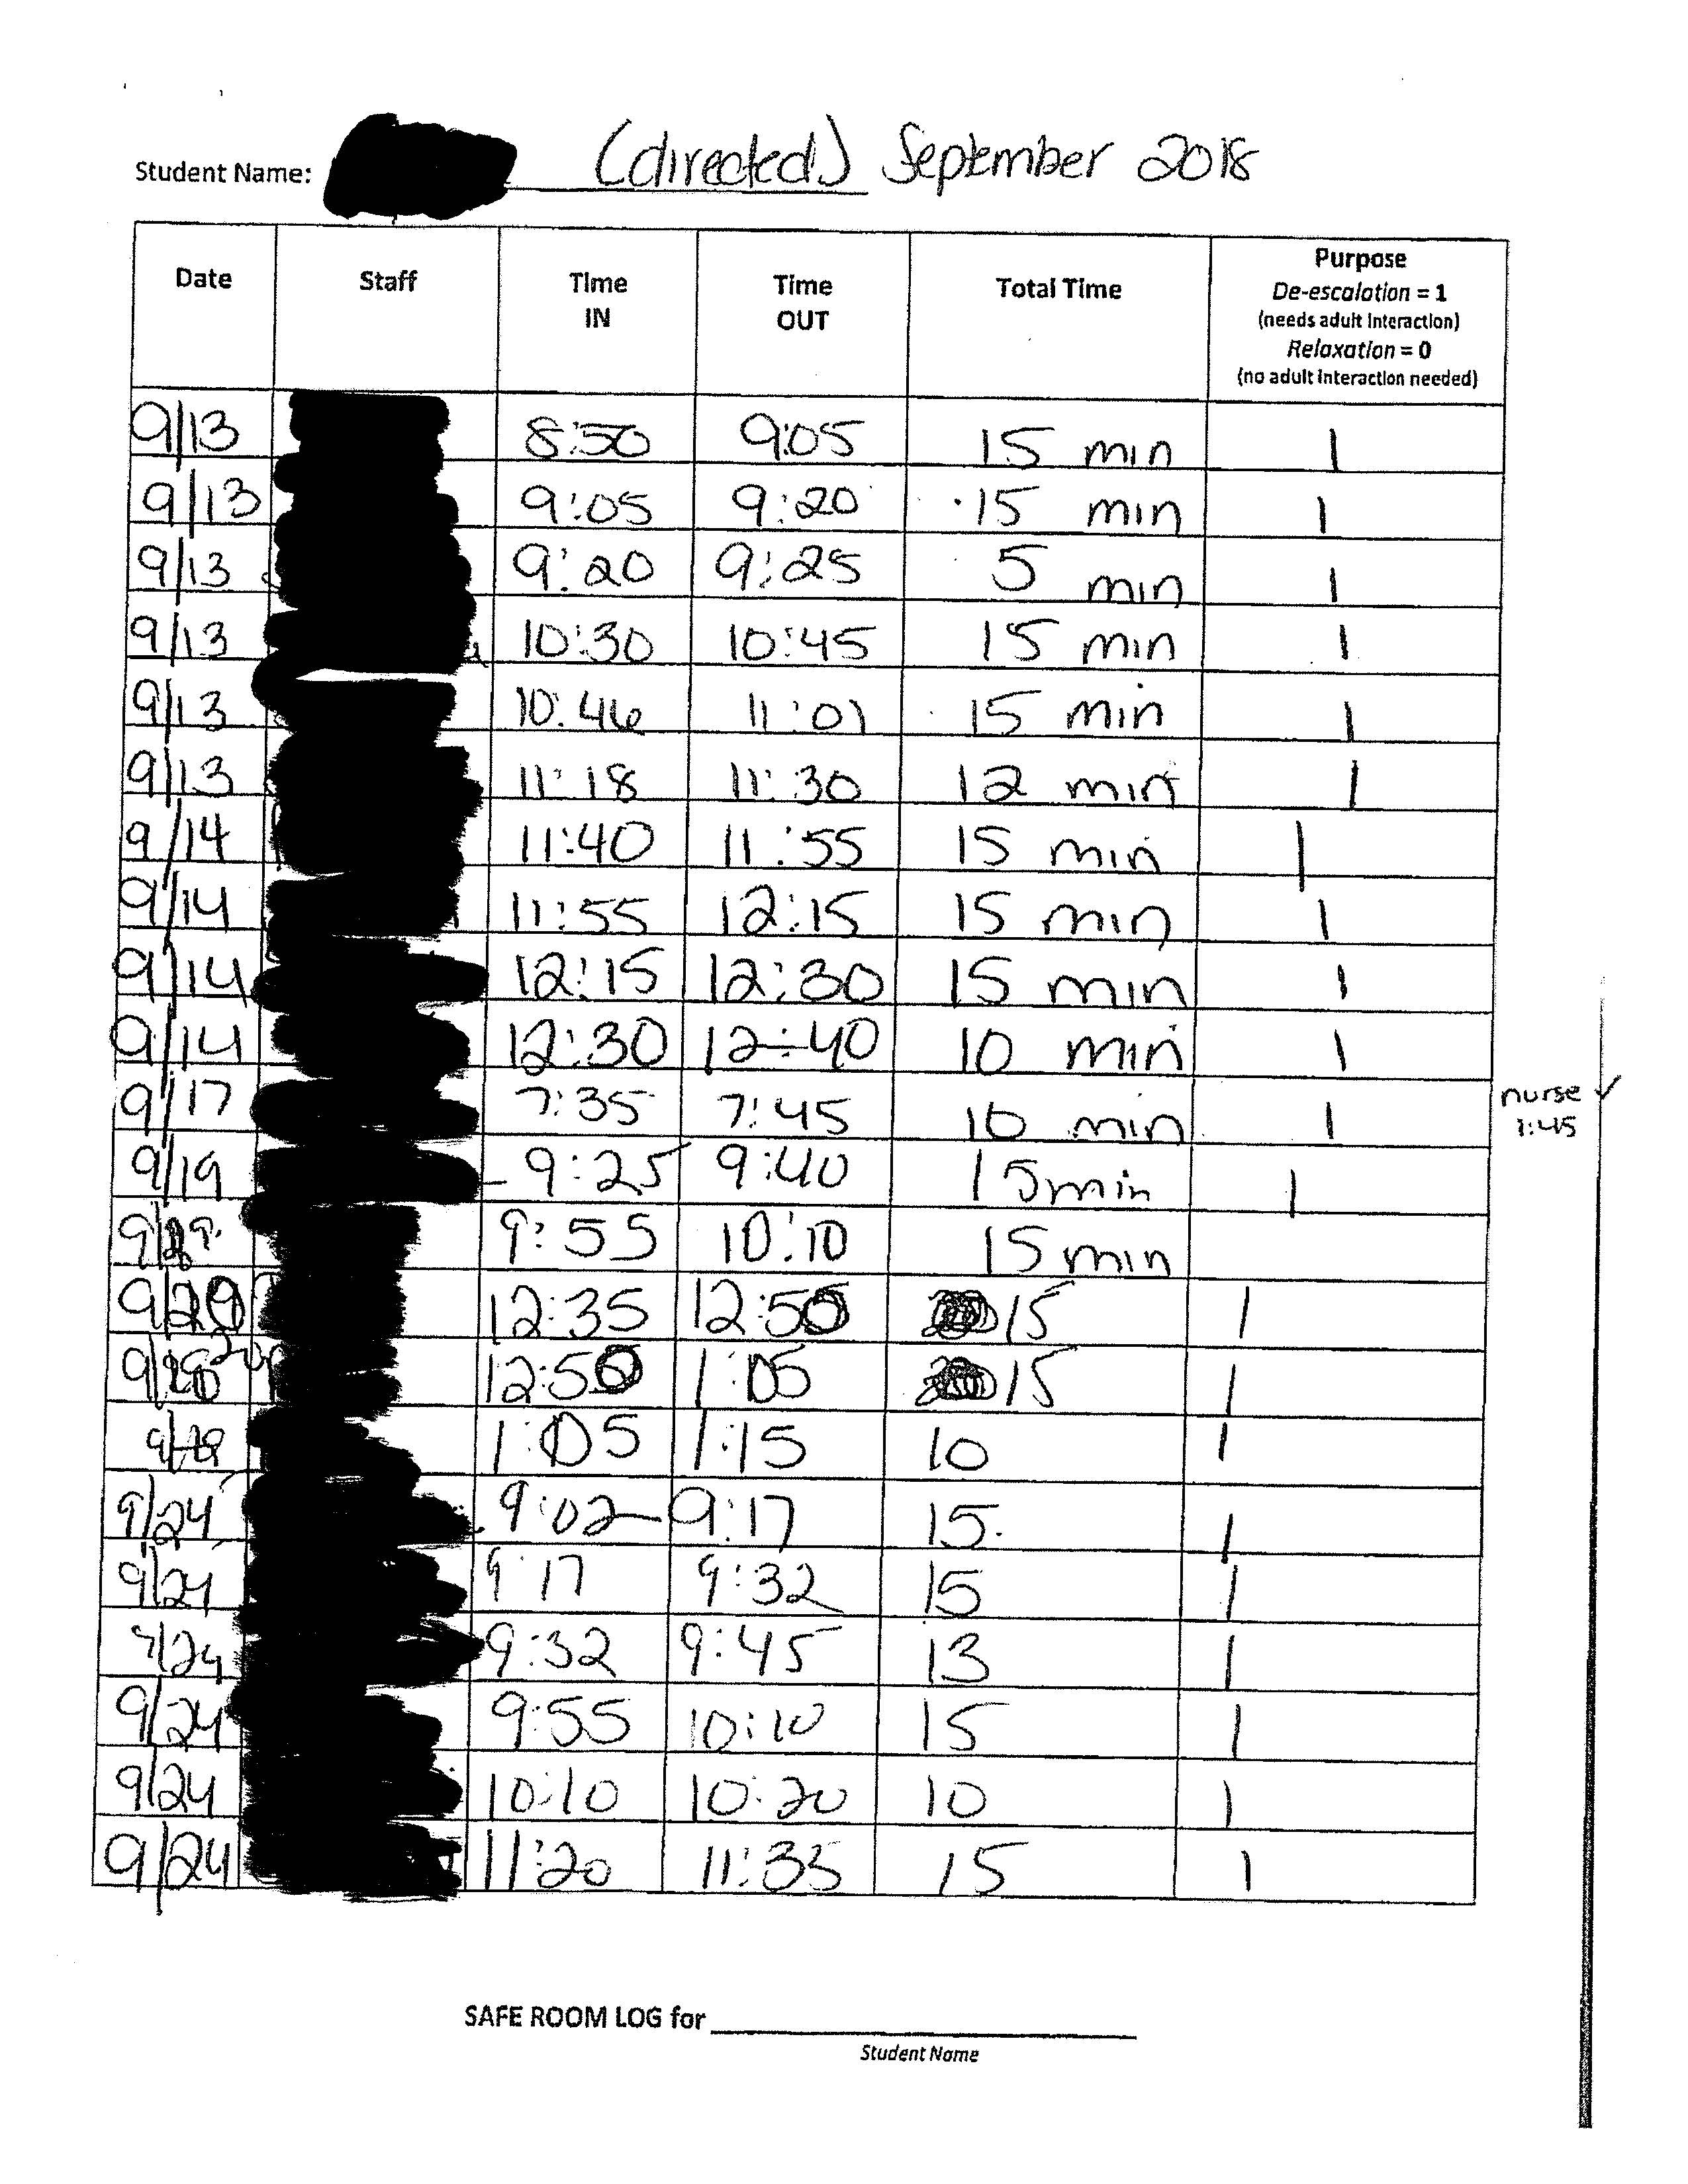 Student Name: (directed) September 2018
Date Staff Time IN Time OUT Total Time Purpose
De-escalation = 1
(needs adult interaction)
Relaxation = 0
(no adult interaction needed)
9/13 8:50 9:05 15 min 1
9/13 9:05 9:20 15 min 1
9/13 9:20 9:25 5 min 1
9/13 10:30 10:45 15 min 1
9/13 10:46 11:01 15 min 1
9/13 11:18 11:30 12 min 1
9/14 11:40 11:55 15 min 1
9/14 11:55 12:15 15 min 1
9/14 12:15 12:30 15 min 1
9/14 12:30 12:40 10 min 1
9/17 7:35 7:45 10 min 1 nurse ✓
1:45
9/19 - 9:25 9:40 15 min 1
9:55 10:10 15 min
12:35 12:50 15 1
12:50 1:05 15 1
1:05 1:15 10 1
9/24 9:02 9:17 15 1
9/24 9:17 9:32 15 1
9/24 9:32 9:45 13 1
9/24 9:55 10:10 15 1
9/24 10:10 10:20 10 1
9/24 11:20 11:35 15 1
SAFE ROOM LOG for
Student Name